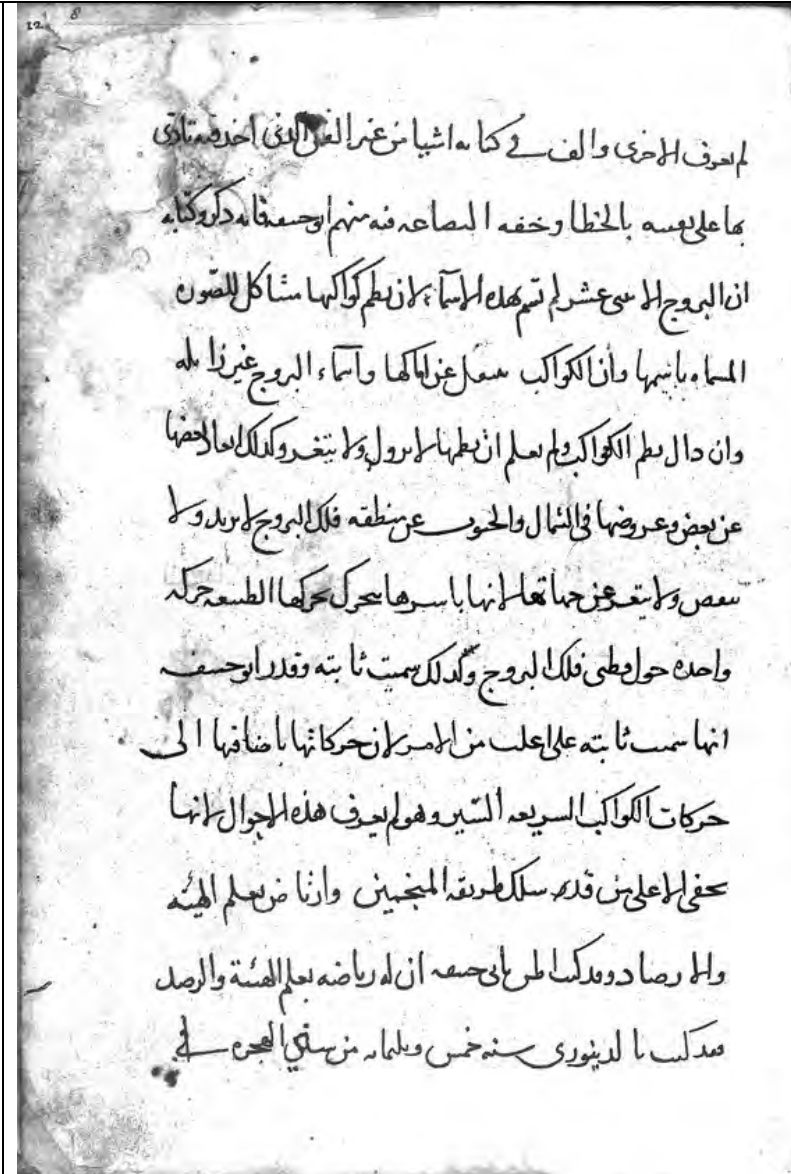 12 8
لم يعرف الاخرى والف في كتابه اشيا من غير الفن الذي اخذ فيه تأدى
بها على نفسه بالخطا وخفه البضاعه فيه منهم ابو حنيفه فانه ذكر في كتابه
ان البروج الاثني عشر لم تسم بهذه الاسماء لان نظم كواكبها مشاكل للصوره
المسماه باسمها وأن الكواكب تنتقل عن اماكنها وأسماء البروج غير زايله
وان زال نظم الكواكب ولم يعلم ان نظمها لا يزول ولا يتغير وكذلك ابعاد بعضها
عن بعض وعروضها في الشمال والجنوب عن منطقه فلك البروج لا يزيد ولا
ينقص ولا يتغير عن جهاتها لانها باسرها تتحرك بحركتها الطبيعه حركه
واحده حول قطبي فلك البروج ولذلك سميت ثابته وقدر ابو حنيفه
انها سميت ثابته على اغلب من الامر لان حركاتها باضافتها الى
حركات الكواكب السريعه السير وهو لم يعرف هذه الاحوال لانها
تخفى الا على من قد سلك طريقه المنجمين وارتاض بعلم الهيئه
والارصاد وقد كنت اظن بابي حنيفه ان له رياضه بعلم الهيئة والرصد
فقد كنت بالدينوري سنه خمس وثلثمايه من سني الهجره في